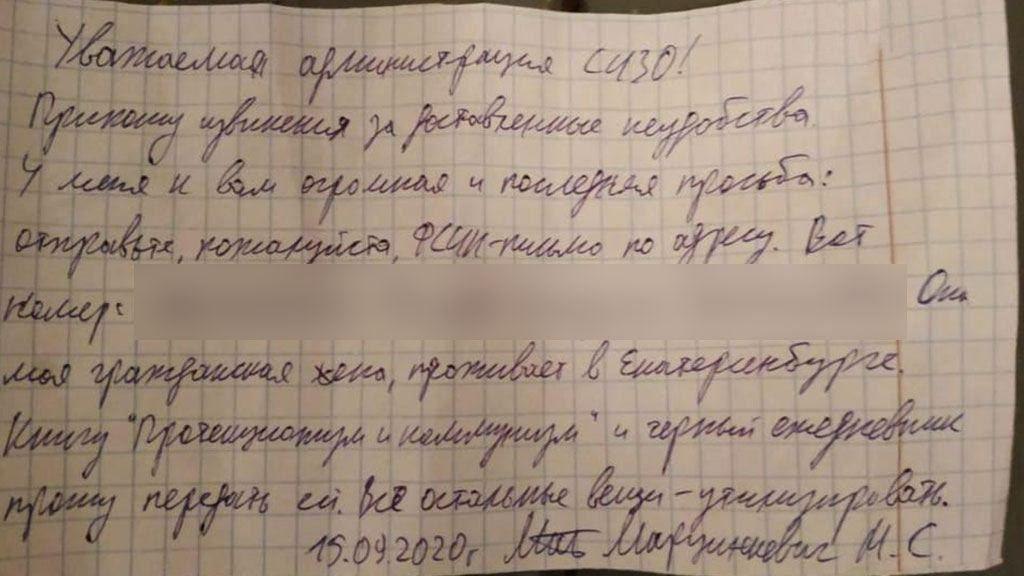 Уважаемая администрация СИЗО!
Приношу извинения за доставленные неудобства.
У меня к вам огромная и последняя просьба:
отправьте, пожалуйста, ФСИН-письмо по адресу. Вот
номер: Она
моя гражданская жена, проживает в Екатеринбурге.
Книгу "Протекционизм и коммунизм" и черный ежедневник
прошу передать ей. Всё остальные вещи - утилизировать.
15.09.2020г Марцинкевич М. С.